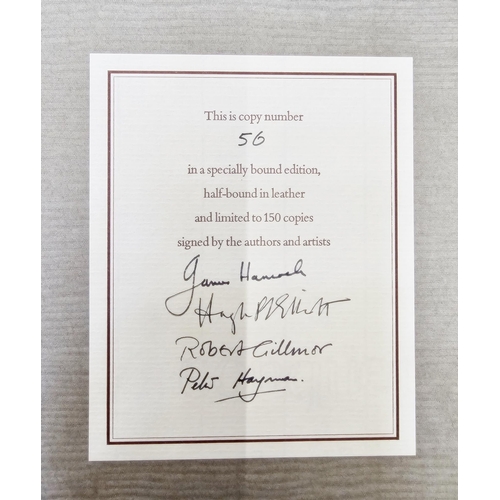 This is copy number
56
in a specially bound edition,
half-bound in leather
and limited to 150 copies
signed by the authors and artists
James Hancock
Hugh P Elliott
Robert Gillmor
Peter Hayman.